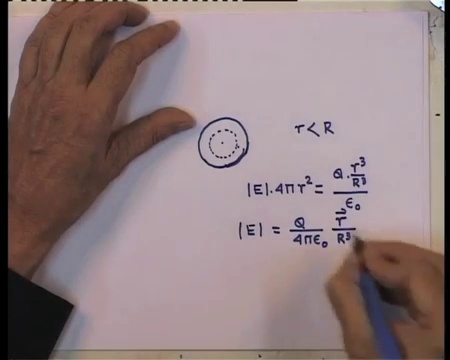 r < R
|E|. 4πr² = Q. r³/R³ / ε₀
|E| = Q/4πε₀ r⃗/R³